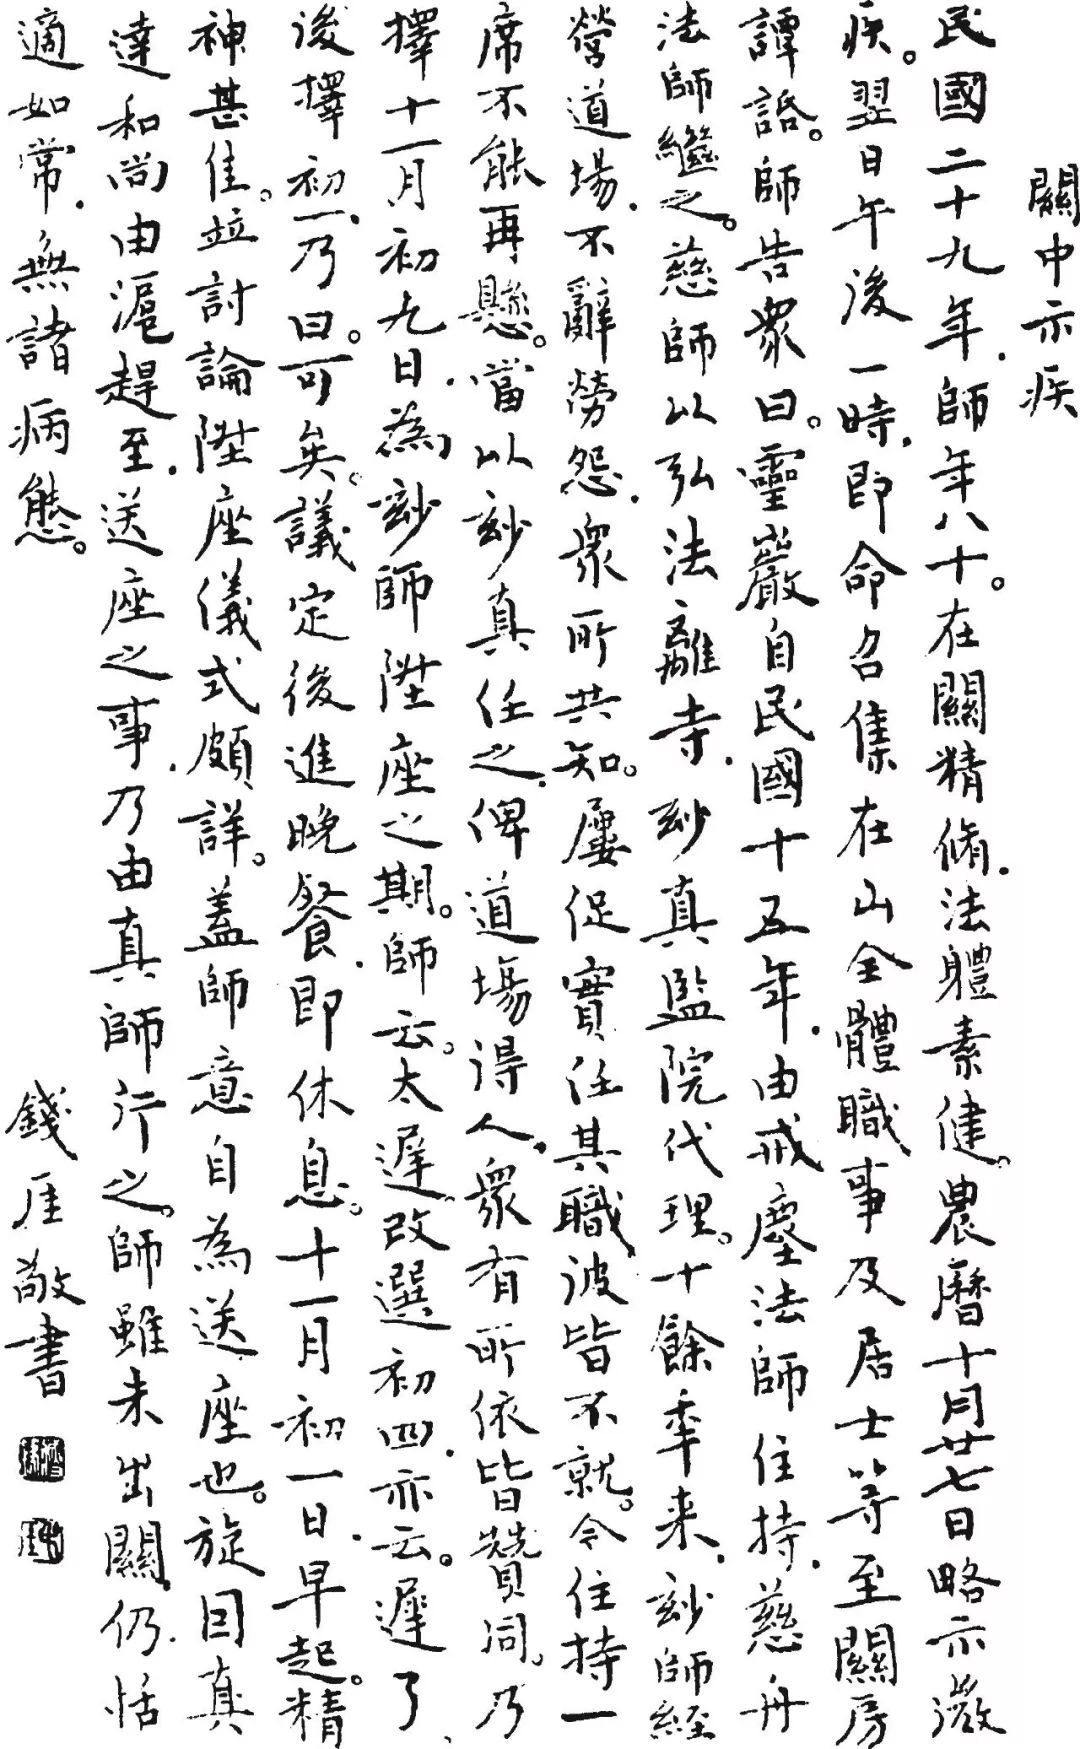 關中示疾
民國二十九年.師年八十。在關精脩.法體素健。農曆十月廿七日略示微
疾。翌日午後一時.即命召集在山全體職事及居士等至關房
譚話。師告眾曰。靈巖自民國十五年.由戒塵法師住持.慈舟
法師繼之。慈師以弘法離寺.玅真監院代理。十餘年来.玅師經
營道場.不辭勞怨.眾所共知。屢促實任其職彼皆不就。今住持一
席不能再懸。當以玅真任之.俾道場得人.眾有所依皆贊同。乃
擇十一月初九日.為玅師陞座之期。師云。太遲。改選初四.亦云。遲了、
後擇初一.乃曰。可矣。議定後進晚餐.即休息。十一月初一日.早起。精
神甚佳。並討論陞座儀式頗詳。蓋師意自為送座也。旋因真
達和尚由滬趕至.送座之事.乃由真師行之。師雖未出關.仍.恬
適如常.無諸病態。
錢厓敬書